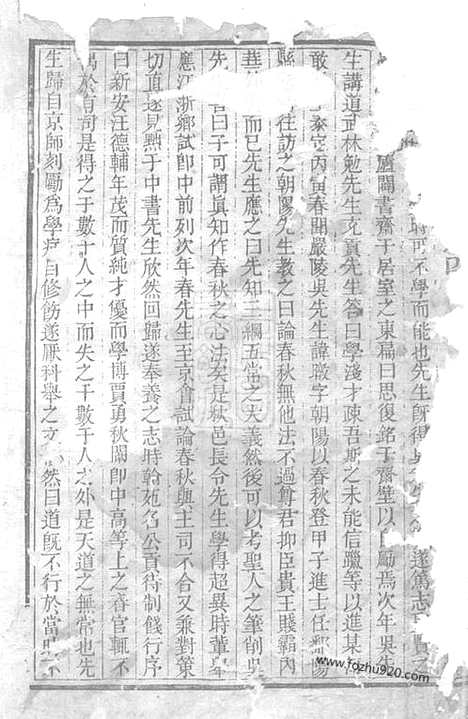 時可不學而能也先生旣得
遂篤志
闢書齋于居室之東扁曰思復銘于齋壁以
勵焉次年吳先
生講道武林勉先生充貢先生答曰學淺才疎吾斯之未能信躐等以進某
敢
泰定丙寅春聞嚴陵吳先生諱暾字朝陽以春秋登甲子進士任鄱陽
縣
往訪之朝陽先生教之曰論春秋無他法不過尊君抑臣貴王賤霸內
而已先生應之曰先知三綱五常之大義然後可以考聖人之筆削吳
先
曰子可謂眞知作春秋之心法矣是秋邑長令先生學得超異時董
應江浙鄉試卽中前列次年春先生至京會試論春秋與主司不合又兼對策
切直遂見黜于中書先生欣然回歸遂奉養之志時翰苑名公貢待制餞行序
曰新安汪德輔年茂而質純才優而學博賈勇秋闈卽中高等上之春官輒不
偶於有司是得之于數十人之中而失之于數千人之外是天道之無常也先
生歸自京師刻勵爲學痛自修飭遂厭科舉之
然曰道旣不行於當
www.fozhu920.com